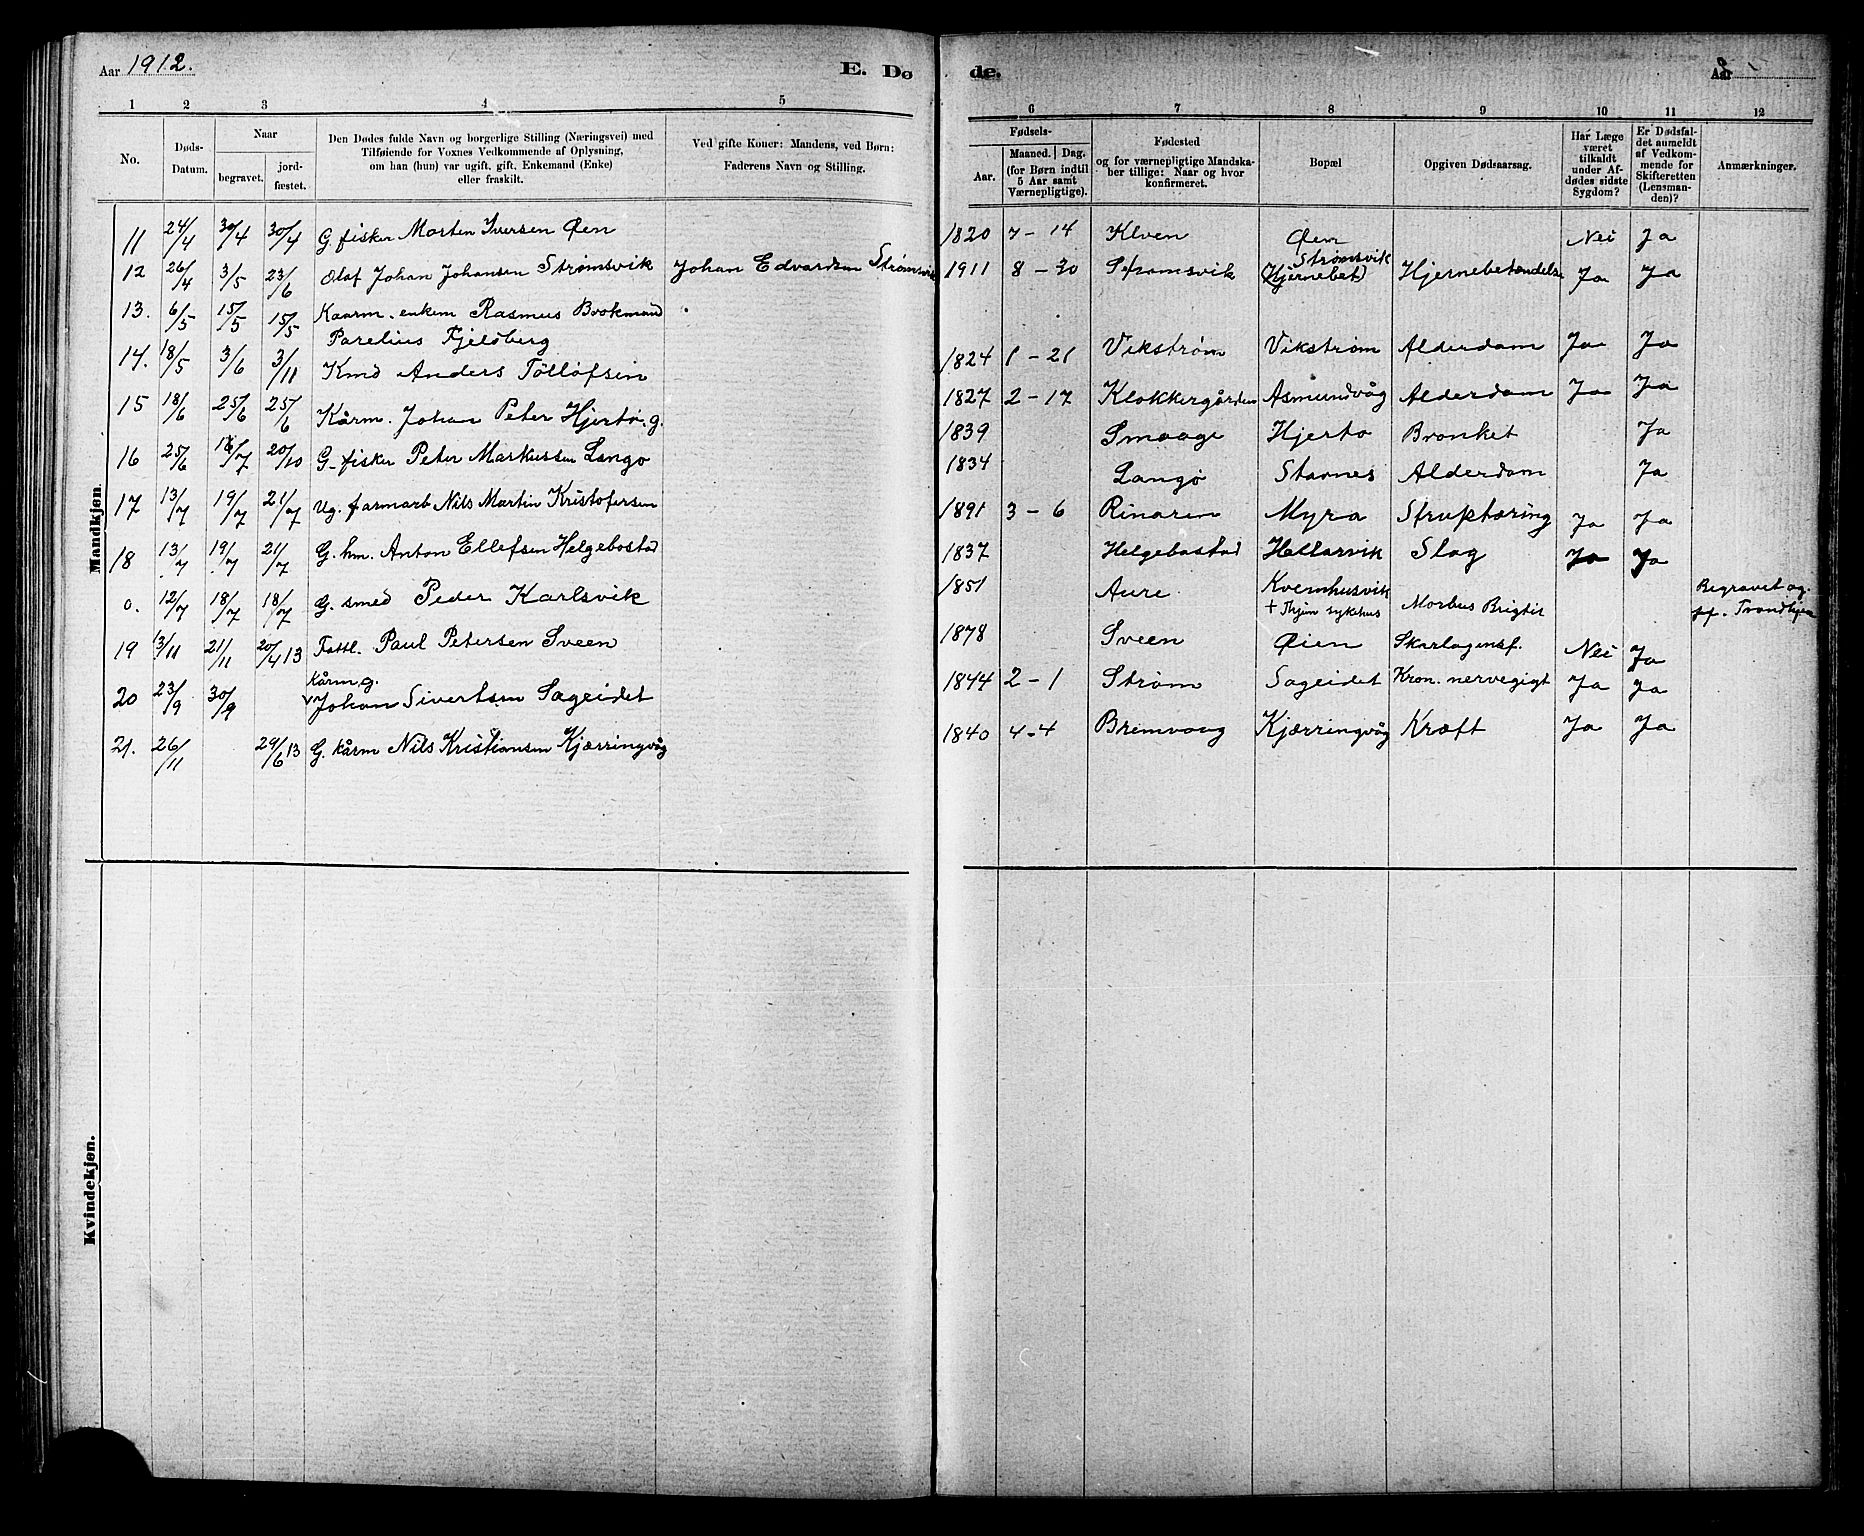 Aar 1912. E. Dø
de. Aar
1 2 3 4 5
6 7 8 9 10 11 12
No.
Døds-Datum.
Naar
begravet.
jord-fæstet.
Den Dødes fulde Navn og borgerlige Stilling (Næringsvei) med
Tilføiende for Voxnes Vedkommende af Oplysning,
om han (hun) var ugift, gift, Enkemand (Enke)
eller fraskilt.
Ved gifte Koner: Mandens, ved Børn:
Faderens Navn og Stilling.
Fødsels-
Aar.
Maaned. Dag.
(for Børn indtil
5 Aar samt
Værnepligtige).
Fødested
og for værnepligtige Mandska-
ber tillige: Naar og hvor
konfirmeret.
Bopæl
Opgiven Dødsaarsag.
Har Læge
været
tilkaldt
under Af-
dødes sidste
Sygdom?
Er Dødsfal-
det anmeldt
af Vedkom-
mende for
Skifteretten
(Lensman-
den)?
Anmærkninger.
Mandkjøn.
11 24/4 30/4 30/4 G. fisker Morten Iversen Øen 1820 7-14 Klven Øen Nei Ja
12 26/4 3/5 23/6 Olaf Johan Johansen Strømsvik Johan Edvardsen Strømsvik 1911 8-30 Strømsvik Strømsvik (Hjernebet) Hjernebetændelse Ja Ja
13. 6/5 15/5 15/5 Kaarm. enkem Rasmus Brokmand
Parelius Fjeldberg 1824 1-21 Vikstrøm Vikstrøm Alderdom Ja Ja
14. 18/5 3/6 3/11 Kmd Anders Tøllofsen 1827 2-17 Klokkergården Asmundvåg Alderdom Ja Ja
15 18/6 25/6 25/6 Kårm. Johan Peter Hjertø. g. 1839 Smaage Hjertø Bronket Ja
16 25/6 /7 20/10 G. fisker Peter Markussen Langø 1834 Langø Starnes Alderdom Ja
17 13/7 19/7 21/7 Ug. farmarb Nils Martin Kristofersen 1891 3-6 Rinaren Myra Struptæring Ja Ja
18 13/7 19/7 21/7 G. hm. Anton Ellefsen Helgebostad 1837 Helgebostad Hellarvik Slag Ja Ja
0. 12/7 18/7 18/7 G. smed Peder Karlsvik 1851 Aure Kvernhusvik
+ Thjem sykehus Morbus Brigtii Begravet og
jf. Trondhjem
19 3/11 21/11 20/4 13 Fattl. Paul Petersen Sveen 1878 Sveen Øien Skarlagensf. Nei Ja
20 23/9 30/9 Kårm, g.
Johan Sivertsen Sageidet 1844 2-1 Strøm Sageidet Kron. nervegigt Ja Ja
21. 26/11 29/6 13 G. kårm Nils Kristiansen Kjærringvåg 1840 4-4 Bremvaag Kjærringvåg Kræft Ja Ja
Kvindekjøn.